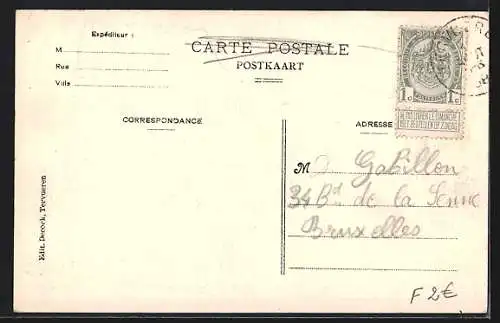 Expéditeur :
M
Rue
Ville
CARTE POSTALE
POSTKAART
CORRESPONDANCE
ADRESSE
1c 1c
NE PAS LIVRER LE DIMANCHE
NIET BESTELLEN OP ZONDAG
M Gabillon
34 Bd de la Senne
Bruxelles
Edit. Decock, Tervueren
F 2€